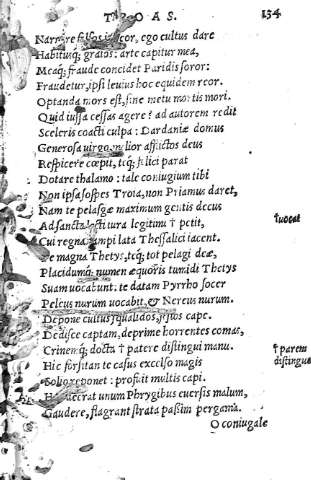 TROAS. 134
Narrare falsos iubeor, ego cultus dare
Habitusq; graios: arte capitur mea,
Meaq; fraude concidet Paridis soror:
Fraudetur, ipsi leuius hoc equidem reor.
Optanda mors est, sine metu mortis mori.
Quid iussa cessas agere? ad autorem redit
Sceleris coacti culpa: Dardaniæ domus
Generosa virgo, melior afflictos deus
Respicere cœpit, teq; felici parat
Dotare thalamo: tale coniugium tibi
Non ipsa sospes Troia, non Priamus daret,
Nam te pelasgæ maximum gentis decus
Ad sancta lecti iura legitimi † petit, †uocat
Cui regna campi lata Thessalici iacent.
Te magna Thetys, teq; tot pelagi deæ,
Placidumq; numen æquoris tumidi Thetys
Suam uocabunt: te datam Pyrrho socer
Peleus nurum uocabit, & Nereus nurum.
Depone cultus squalidos, festos cape.
Dedisce captam, deprime horrentes comas,
Crinemq; docta † patere distingui manu. † parem
Hic forsitan te casus excelso magis distingue
Solio reponet: profuit multis capi.
Hoc deerat unum Phrygibus euersis malum,
Gaudere, flagrant strata passim pergama.
O coniugale